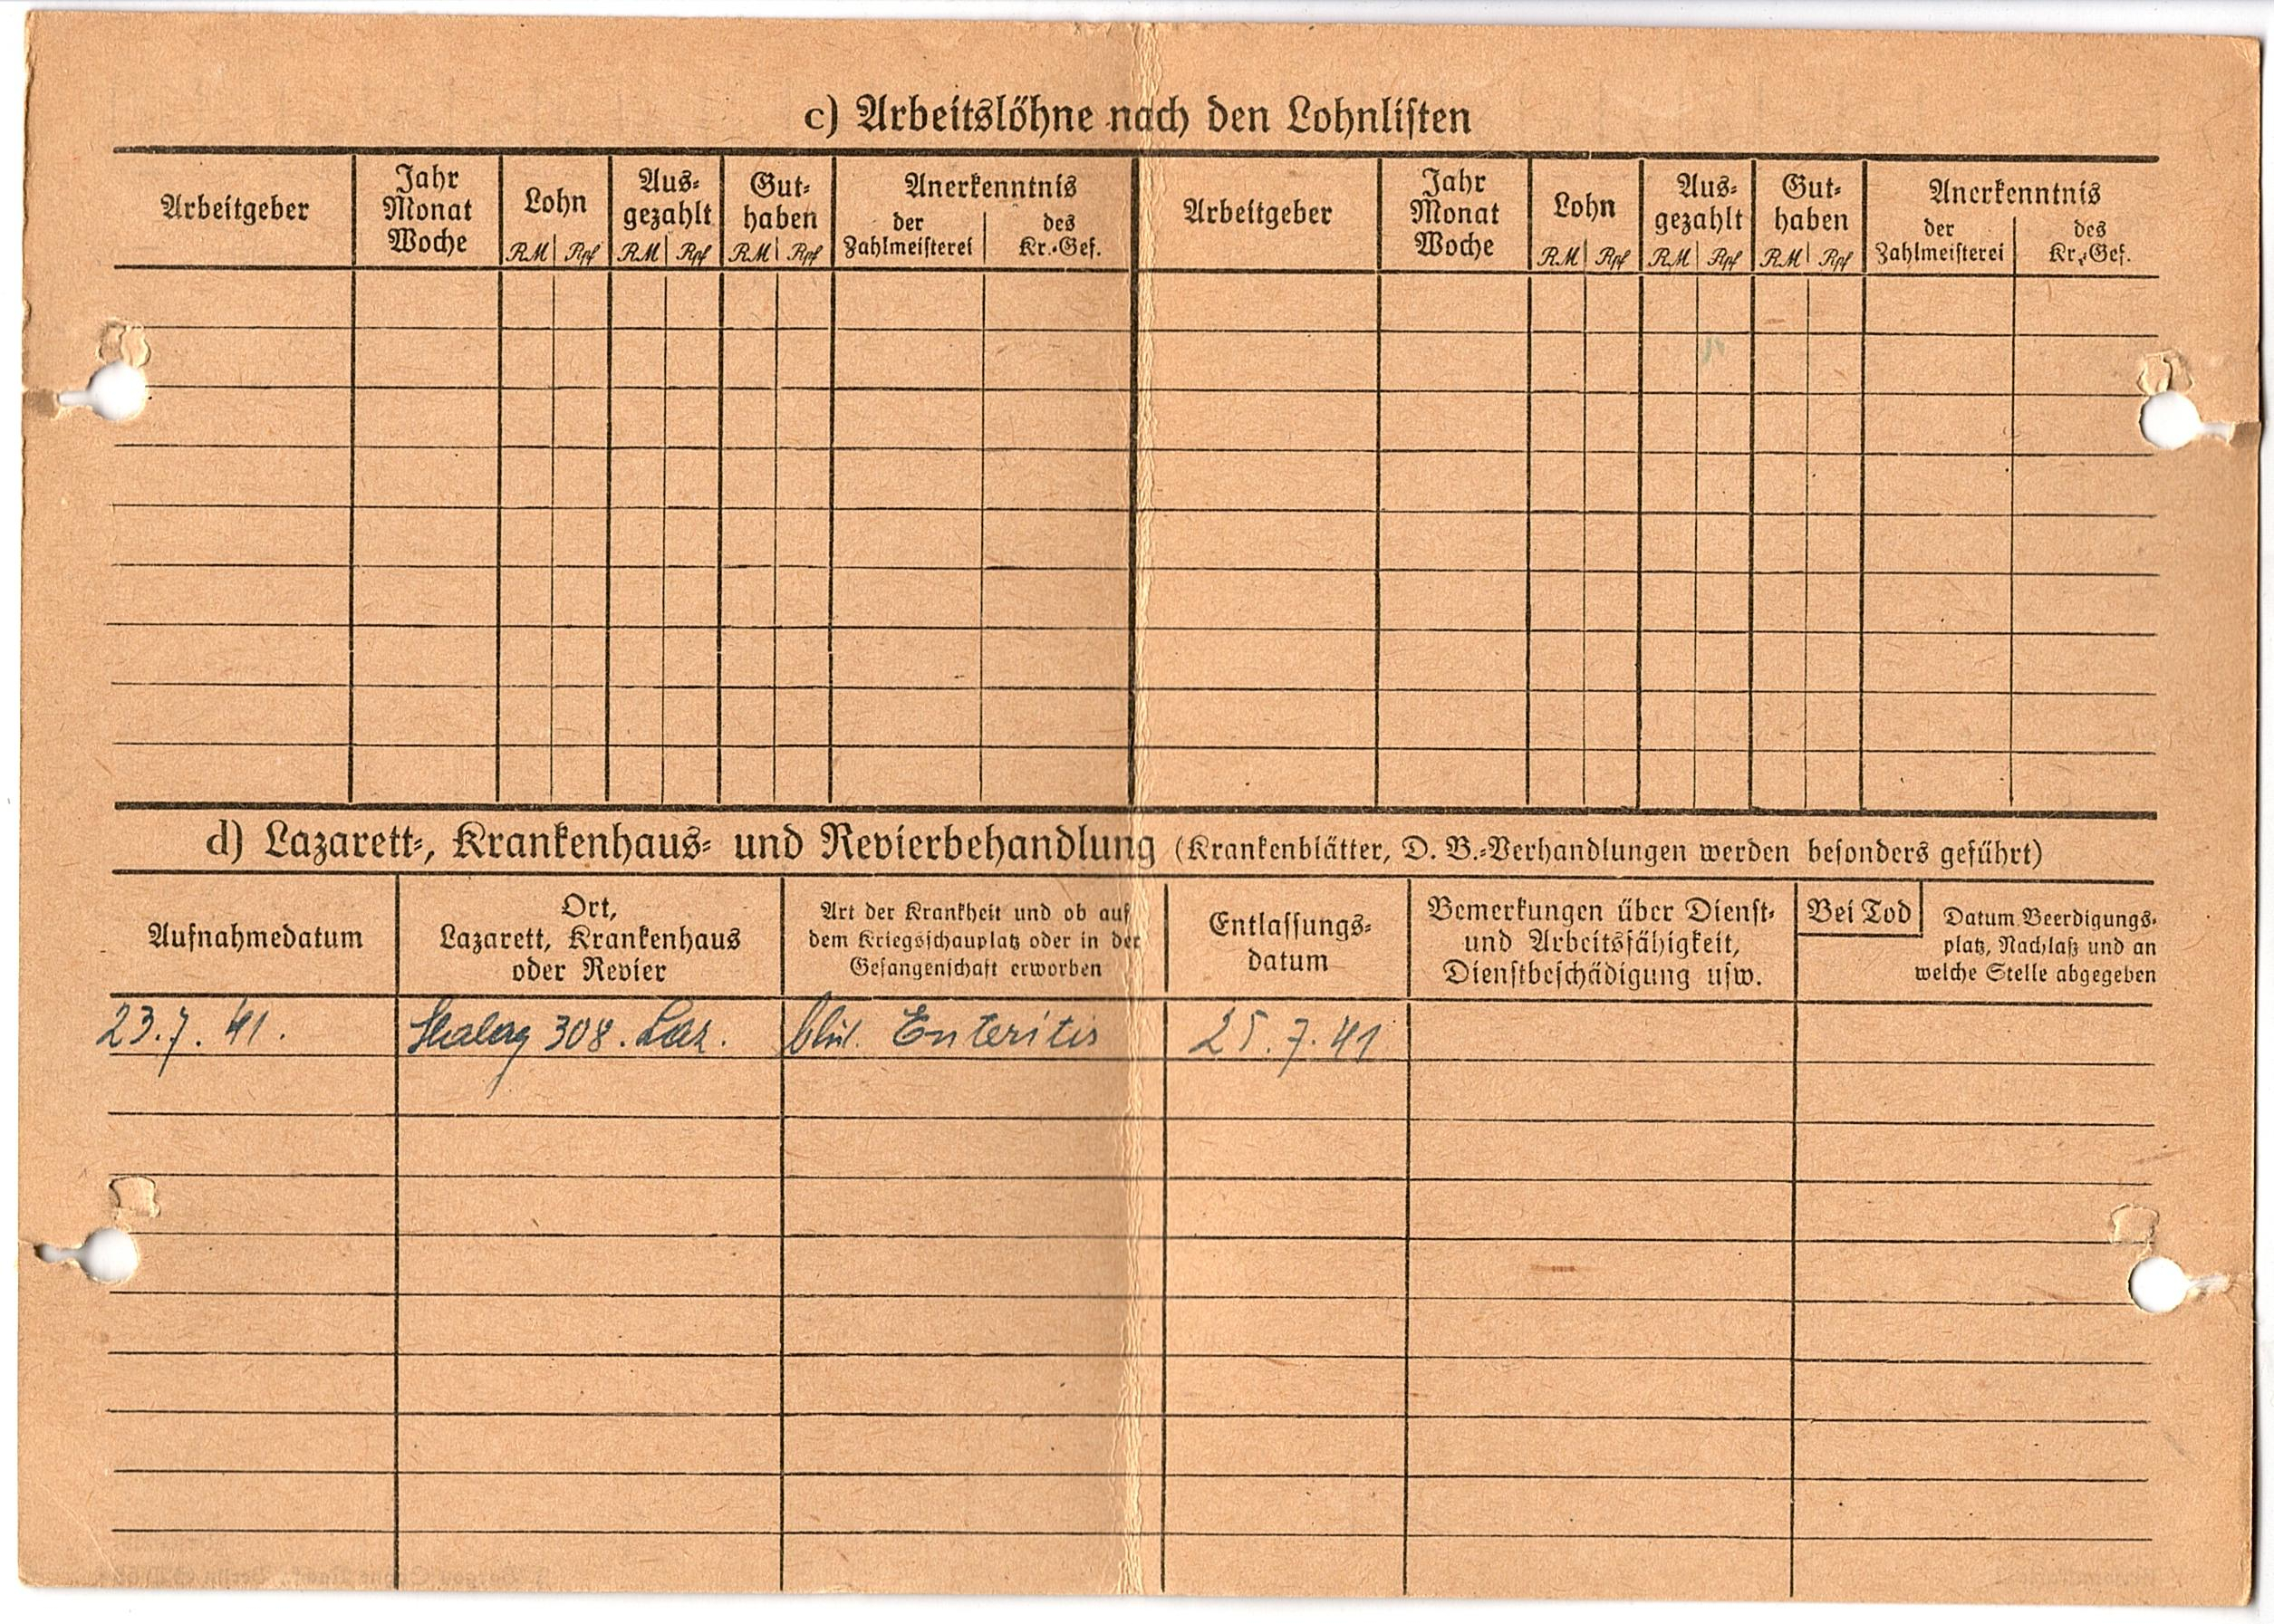 c) Arbeitslöhne nach den Lohnlisten
Arbeitgeber
Jahr
Monat
Woche
Lohn
RM Rpf
Aus-
gezahlt
RM Rpf
Gut-
haben
RM Rpf
Anerkenntnis
der
Zahlmeisterei
des
Kr.-Gef.
Arbeitgeber
Jahr
Monat
Woche
Lohn
RM Rpf
Aus-
gezahlt
RM Rpf
Gut-
haben
RM Rpf
Anerkenntnis
der
Zahlmeisterei
des
Kr.-Gef.
d) Lazarett-, Krankenhaus- und Revierbehandlung (Krankenblätter, D. B.-Verhandlungen werden besonders geführt)
Aufnahmedatum
Ort,
Lazarett, Krankenhaus
oder Revier
Art der Krankheit und ob auf
dem Kriegsschauplatz oder in der
Gefangenschaft erworben
Entlassungs-
datum
Bemerkungen über Dienst-
und Arbeitsfähigkeit,
Dienstbeschädigung usw.
Bei Tod
Datum, Beerdigungs-
platz, Nachlaß und an
welche Stelle abgegeben
23.7.41. Stalag 308. Laz. blut. Enteritis 25.7.41